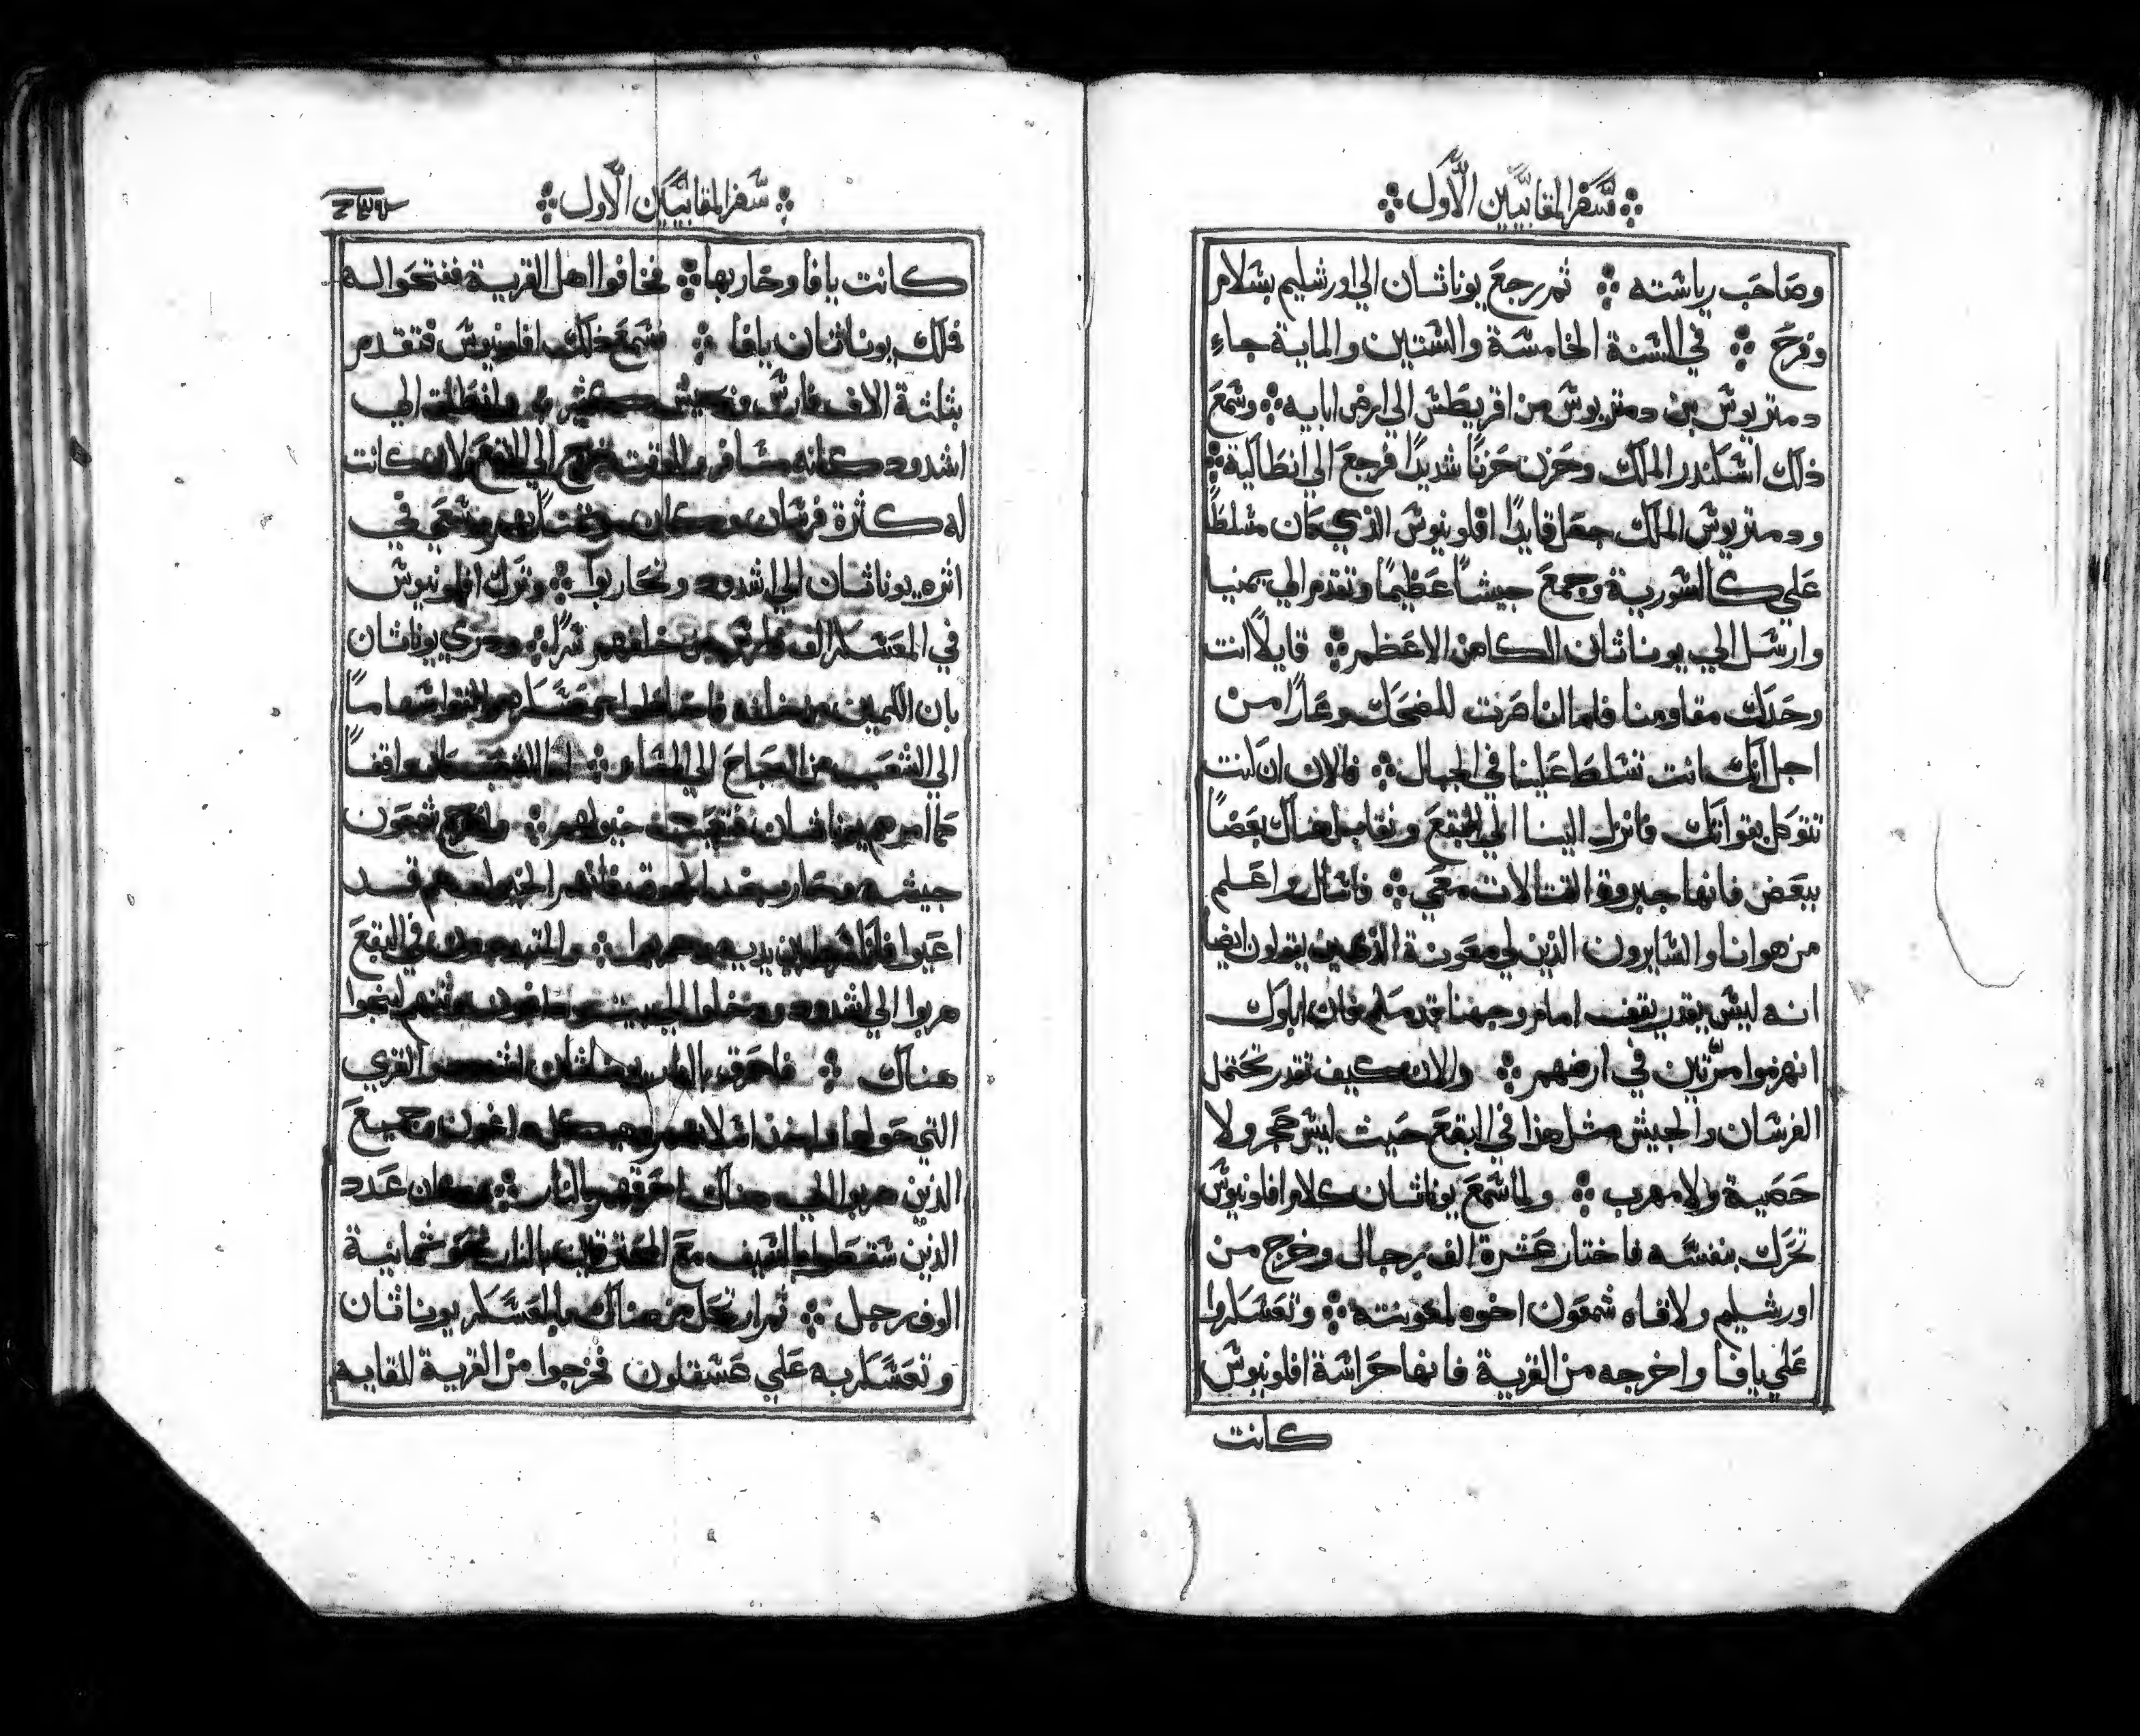 سفر المقابيين الاول
وصاحب رياسته ثم رجع يوناثان الي اورشليم بسلام
وفرح في السنة الخامسة والستين والماية جاء
دمتريوس بن دمتريوس من اقريطش الي ارض ابايه وسمع
ذلك اسكندر الملك وحزن حزنا شديدا فرجع الي انطاكية
ودمتريوس الملك جعل قايدا افلونيوس الذي كان مسلطا
علي كالسورية وجمع جيشا عظيما وتقدم الي يمنيا
وارسل الي يوناثان الكاهن الاعظم قايلا انت
وحدك مقاومنا فلما انا صرت للضحك وعارا من
اجل انك انت تسلط علينا في الجبال فالان ان كنت
تتوكل بقواتك فانزل الينا الي البقع ونقابل هناك بعضا
ببعض فانها جبروة القتالات معي فاسال واعلم
من هو انا والسايرون الذين لي معونة الذين يقولون ايضا
انه ليس يقدر يقف امام وجهنا قدمكم فان اباوك
انهزموا مرتين في ارضهم والان كيف تقدر تحتمل
الفرسان والجيش مثل هذا في البقع حيث ليس حجر ولا
حصية ولا مهرب ولما سمع يوناثان كلام افلونيوس
تحرك بنفسه فاختار عشرة الف رجال وخرج من
اورشليم ولاقاه شمعون اخوه لمعونته وتعسكروا
علي يافا واخرجه من القرية فانها حراسة افلونيوس
كانت
سفر المقابيين الاول
كانت يافا وحاربها فخافوا اهل القرية ففتحوا له
فلك يوناثان يافا فسمع ذلك افلونيوس فتقدم
بثلثة الاف فارس وجيش كثير وانطلق الي
اشدود كانه مسافر وللوقت خرج الي البقع لانه كانت
له كثرة فرسان وكان في
اثره يوناثان الي اشدود وتحاربوا وترك افلونيوس
في المعسكر الف فارس من خلفهم سرا ودري يوناثان
بان الكمين من خلفه فاحاطوا معسكره سهاما
الي الشعب من الصباح الي المسا اما الشعب كان واقفا
كما امرهم يوناثان فتعبت خيولهم واخرج شمعون
جيشه وحارب الخيل هم قد
اعيوا في البقع
هربوا الي اشدود ودخلوا الي بيت داغون لينجوا
هناك فاحرق بالنار يوناثان اشدود والقري
التي حولها واخذ اسلابهم وهيكل داغون وجميع
الذين هربوا الي هناك احرقهم بالنار وكان عدد
الذين سقطوا بالسيف مع المحترقين بالنار نحو ثمانية
الوف رجل ثم ارتحل من هناك بالمعسكر يوناثان
وتعسكر به علي عسقلون فخرجوا من القرية للقايه